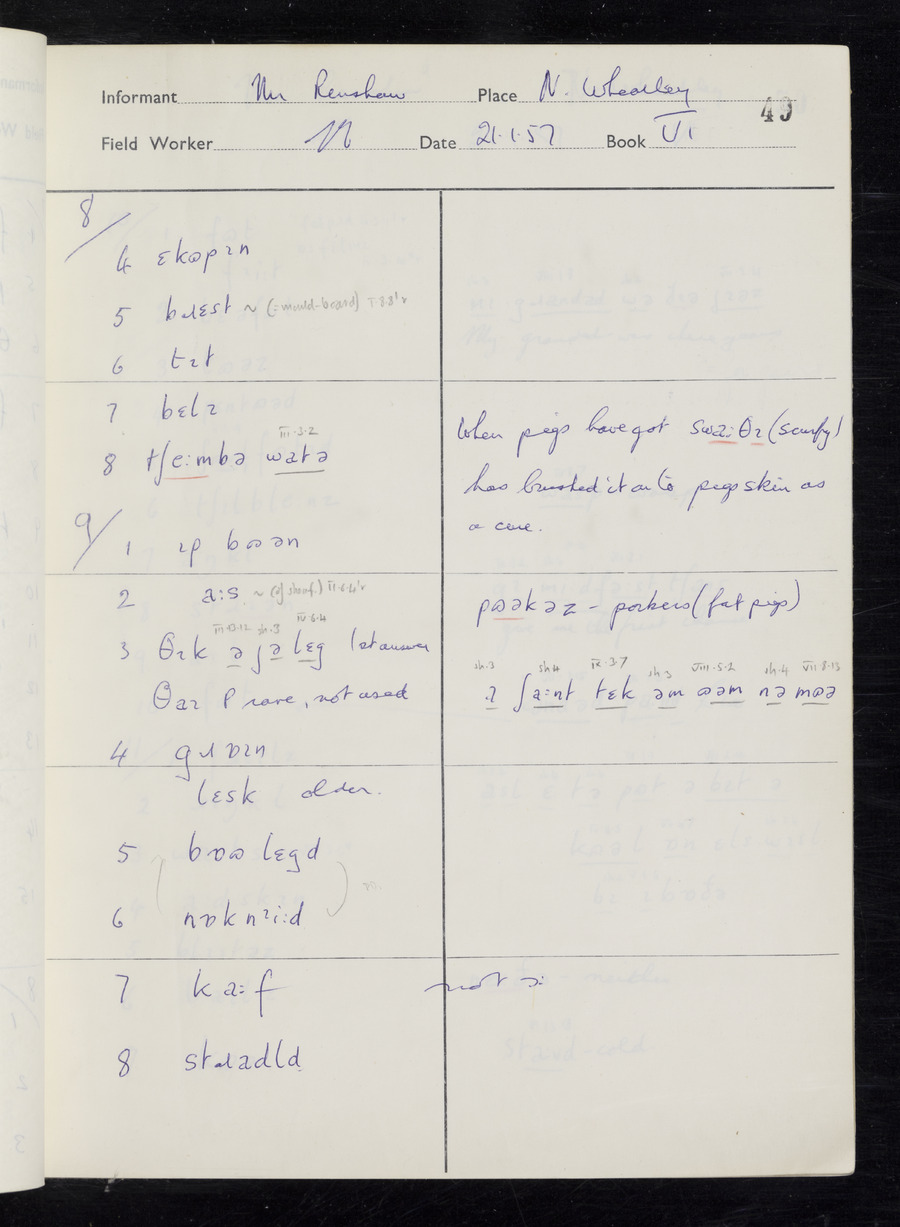 Informant Mr Renshaw Place N. Wheatley
49
Field Worker Date 21.1.57 Book VI
8/
4 ɛkɷpɪn
5 bɹɛst ~ (= mould-board) I.8.8'r
6 tɪt
7 bɛlɪ
III.3.2
8 tʃe:mbə watə
9/
1 ɪp bɷən
2 a:s ~ (of sheaf.) II.6.4'r
III.13.12 sh.3 IV.6.4
3 θɪk ə jə lɛg 1st answer
θaɪ P rare, not used
4 gɹɒɪn
lɛsk older.
5 bɒɷ lɛgd
6 nɒk nɪi:d
7 ka:f
8 stɹadld
When pigs have got swa:θɪ (scurfy)
has brushed it on to pigs skin as
a cure.
pɷəkəz – porkers (fat pigs)
sh.3 sh.4 IX.3.7 sh.3 VIII.5.2 sh.4 VII.8.13
ɪ ʃa:nt tɛk əm ɷəm nə mɷə
not ɔ: